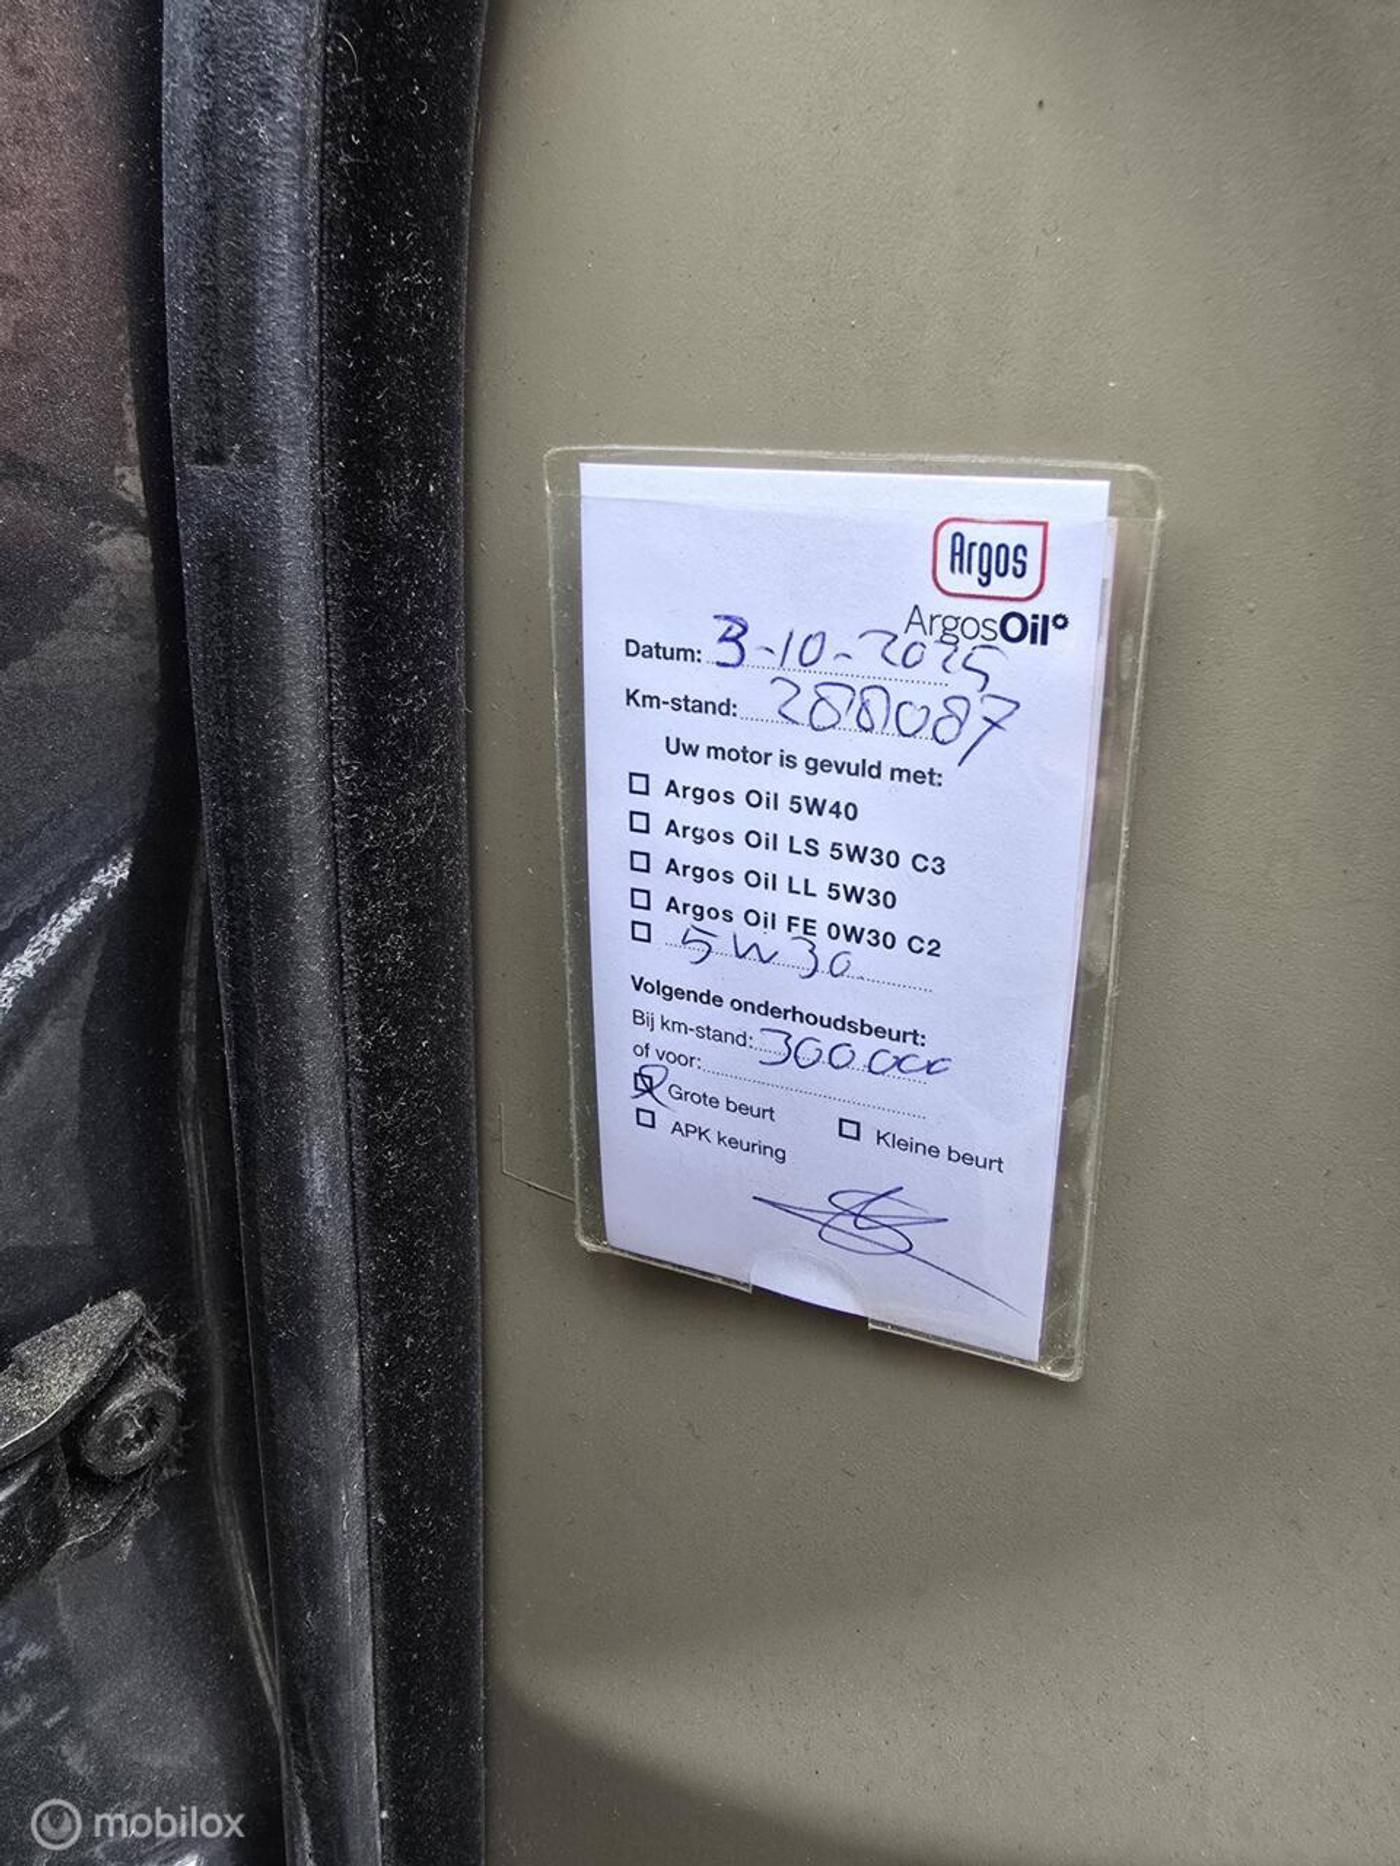 Argos
ArgosOil
Datum: 3-10-2025
Km-stand: 288087
Uw motor is gevuld met:
☐ Argos Oil 5W40
☐ Argos Oil LS 5W30 C3
☐ Argos Oil LL 5W30
☐ Argos Oil FE 0W30 C2
☐ 5W30
Volgende onderhoudsbeurt:
Bij km-stand: 300000
of voor:
☒ Grote beurt ☐ Kleine beurt
☐ APK keuring
mobilox